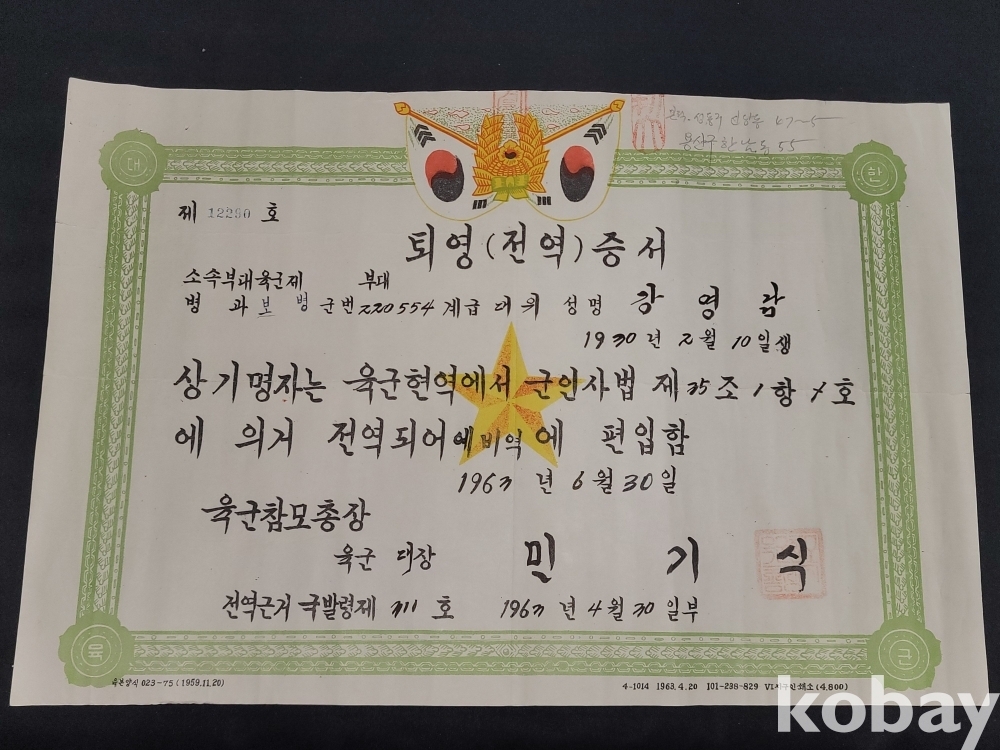 용산구 한남동 55
대
한
제 12280 호
퇴영(전역)증서
소속부대육군제 부대
병 과 보 병 군번 220554 계급 대 위 성명 강 영
1930 년 2 월 10 일생
상기명자는 육군현역에서 군인사법 제 35 조 1 항 호
에 의거 전역되어 예비역 에 편입함
1963 년 6 월 30 일
육군참모총장
육군 대장 민 기 식
전역근거 국발령제 311 호 1963 년 4 월 30 일부
육
군
육본양식 023-75 (1959.11.20)
4-1014 1963.4.20 101-238-829 (4,800)
kobay